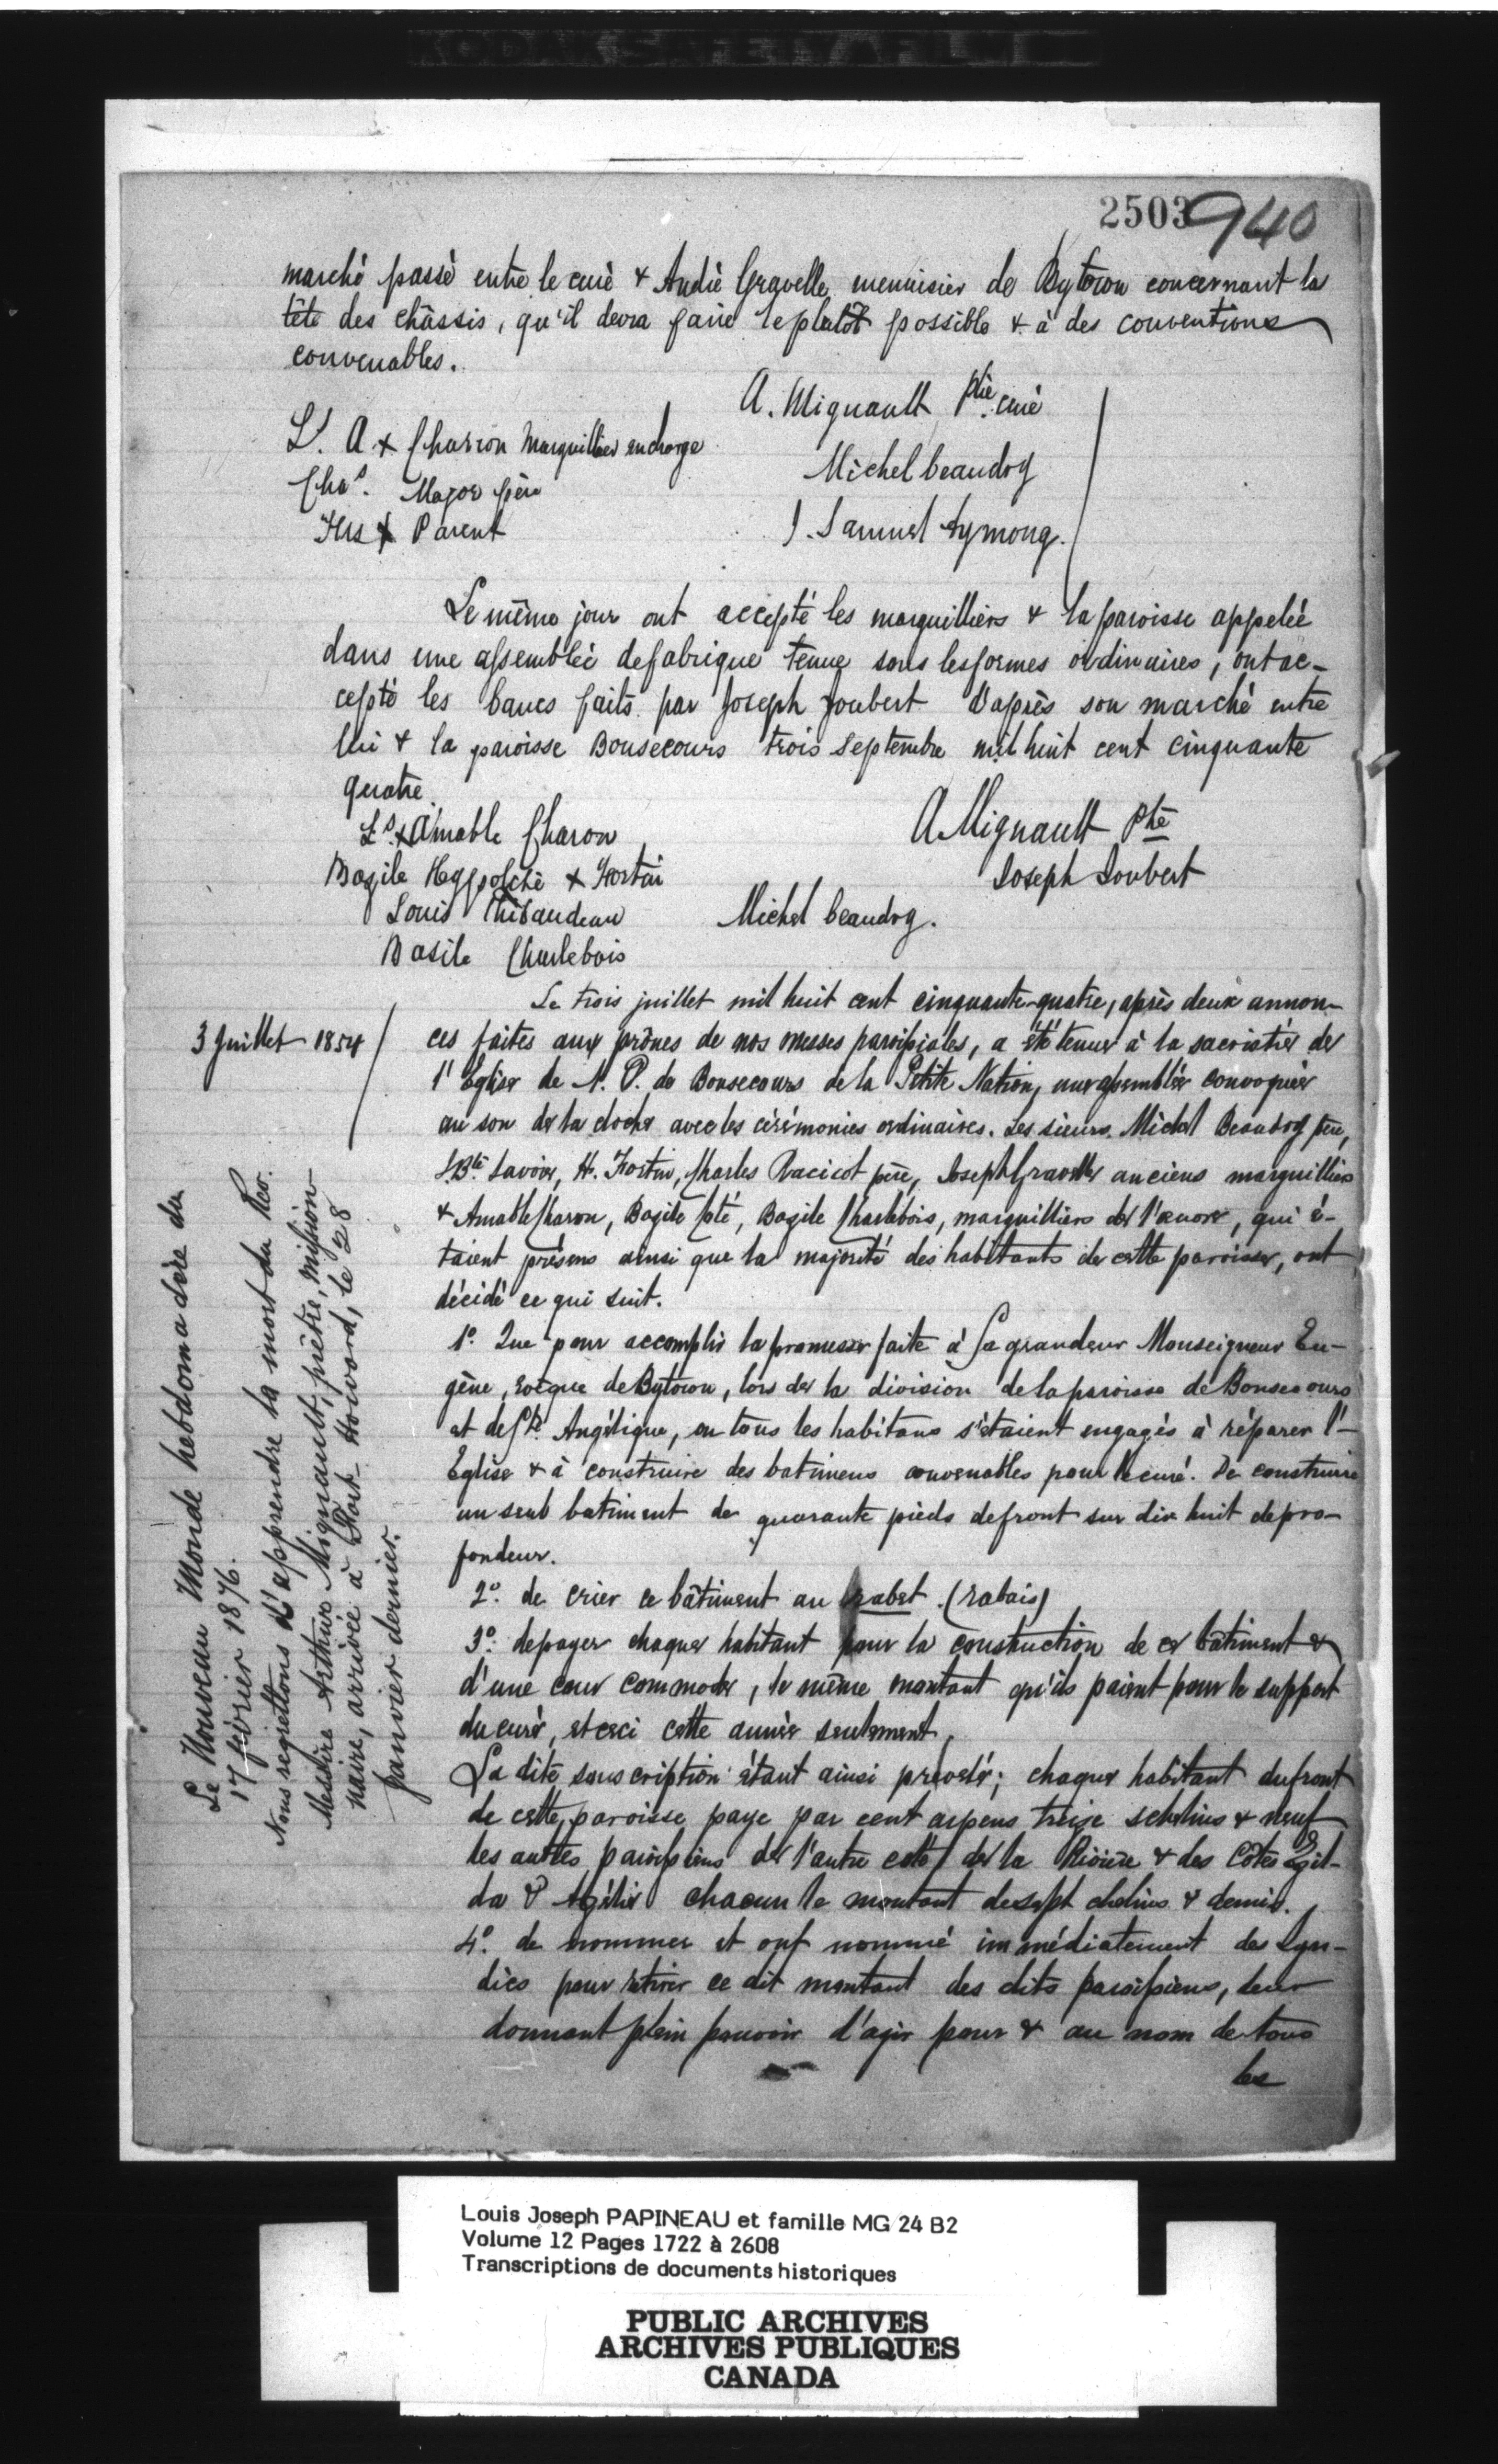 KODAK SAFETY FILM
2503 940
marché passé entre le curé & André Gravelle menuisier de Bytown concernant la
tête des châssis, qu'il devra faire le plutôt possible & à des conventions
convenables.
A. Mignault ptre. curé
Ls. A + Charron Marguillier en charge
Michel beaudry
Chas. Major père
J. Samuel Aymong.
Frs + Parent
Le même jour ont accepté les marguilliers & la paroisse appelée
dans une assemblée de fabrique tenue sous les formes ordinaires, ont ac-
cepté les bancs faits par Joseph Joubert d'après son marché entre
lui & la paroisse Bonsecours trois septembre mil huit cent cinquante
quatre.
Ls. + Amable Charon
A Mignault Ptre
Bazile Hyppolite + Fortin
Joseph Joubert
Louis Thibaudeau
Michel beaudry.
Basile Charlebois
3 Juillet 1854
Le trois juillet mil huit cent cinquante-quatre, après deux annon-
ces faites aux prônes de nos messes paroissiales, a été tenue à la sacristie de
l'Eglise de N. D. de Bonsecours de la Petite Nation, une assemblée convoquée
au son de la cloche avec les cérémonies ordinaires. Les sieurs Michel Beaudry père,
J.Bte Savoie, H. Fortin, Charles Racicot père, Joseph Gravelle anciens marguilliers
& Amable Charon, Bazile Coté, Bazile Charlebois, marguilliers de l'œuvre, qui é-
taient présens ainsi que la majorité des habitants de cette paroisse, ont
décidé ce qui suit.
1o. Que pour accomplir la promesse faite à Sa grandeur Monseigneur Eu-
gène, évêque de Bytown, lors de la division de la paroisse de Bonsecours
et de Ste Angélique, ou tous les habitans s'étaient engagés à réparer l'-
Eglise & à construire des batimens convenables pour le curé. De construire
un seul batiment de quarante pieds de front sur dix huit de pro-
fondeur.
2o. de crier ce bâtiment au rabet. (rabais)
3o. de payer chaque habitant pour la construction de ce bâtiment &
d'une cour commode, le même montant qu'ils paient pour le support
du curé, et ceci cette année seulement.
La dite souscription étant ainsi prélevée; chaque habitant du front
de cette paroisse paye par cent arpens treize schelins & neuf
les autres paroissiens de l'autre coté de la Rivière & des Côtes Ezil-
da & Azélie chacun le montant de sept chelins & demie.
4o. de nommer et ont nommé immédiatement des Syn-
dics pour retirer ce dit montant des dits paroissiens, leur
donnant plein pouvoir d'agir pour & au nom de tous
les
Le Nouveau Monde hebdomadaire du
17 février 1876.
Nous regrettons d'apprendre la mort du Rev.
Messire Arthur Mignault, prêtre, mission-
naire, arrivée à Fort Howard, le 28
janvier dernier.
Louis Joseph PAPINEAU et famille MG 24 B2
Volume 12 Pages 1722 à 2608
Transcriptions de documents historiques
PUBLIC ARCHIVES
ARCHIVES PUBLIQUES
CANADA